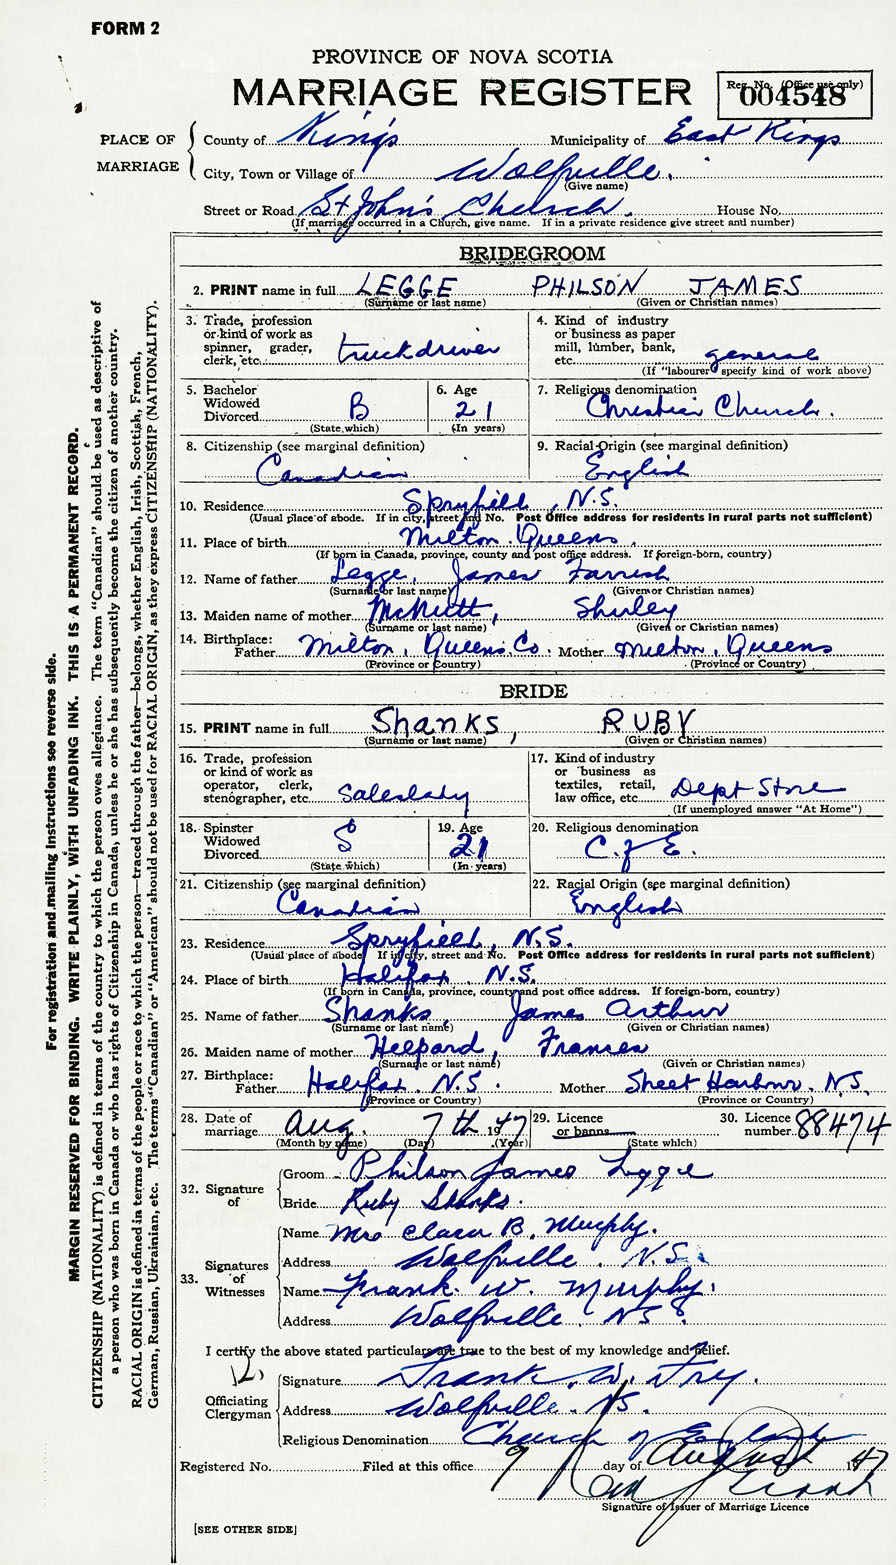 FORM 2
PROVINCE OF NOVA SCOTIA
MARRIAGE REGISTER
Reg. No. (Office use only)
004548
PLACE OF MARRIAGE
County of King's Municipality of East Kings
City, Town or Village of Wolfville.
(Give name)
Street or Road St John's Church. House No.
(If marriage occurred in a Church, give name. If in a private residence give street and number)
BRIDEGROOM
2. PRINT name in full LEGGE PHILSON JAMES
(Surname or last name) (Given or Christian names)
3. Trade, profession or kind of work as spinner, grader, clerk, etc. truckdriver
4. Kind of industry or business as paper mill, lumber, bank, etc. general
(If "labourer" specify kind of work above)
5. Bachelor Widowed Divorced B
(State which)
6. Age 21
(In years)
7. Religious denomination Christian Church.
8. Citizenship (see marginal definition) Canadian
9. Racial Origin (see marginal definition) English
10. Residence Spryfield, N.S.
(Usual place of abode. If in city, street and No. Post Office address for residents in rural parts not sufficient)
11. Place of birth Milton Queens.
(If born in Canada, province, county and post office address. If foreign-born, country)
12. Name of father Legge, James Farrish
(Surname or last name) (Given or Christian names)
13. Maiden name of mother McNutt, Shirley
(Surname or last name) (Given or Christian names)
14. Birthplace:
Father Milton, Queens Co. Mother Milton, Queens
(Province or Country) (Province or Country)
BRIDE
15. PRINT name in full Shanks, RUBY
(Surname or last name) (Given or Christian names)
16. Trade, profession or kind of work as operator, clerk, stenographer, etc. saleslady
17. Kind of industry or business as textiles, retail, law office, etc. Dept Store
(If unemployed answer "At Home")
18. Spinster Widowed Divorced S
(State which)
19. Age 21
(In years)
20. Religious denomination C. of E.
21. Citizenship (see marginal definition) Canadian
22. Racial Origin (see marginal definition) English
23. Residence Spryfield, N.S.
(Usual place of abode. If in city, street and No. Post Office address for residents in rural parts not sufficient)
24. Place of birth Halifax, N.S.
(If born in Canada, province, county and post office address. If foreign-born, country)
25. Name of father Shanks, James Arthur
(Surname or last name) (Given or Christian names)
26. Maiden name of mother Helpard, Frances
(Surname or last name) (Given or Christian names)
27. Birthplace:
Father Halifax, N.S. Mother Sheet Harbour, N.S.
(Province or Country) (Province or Country)
28. Date of marriage Aug. 7th 1947
(Month by name) (Day) (Year)
29. Licence or banns
(State which)
30. Licence number 88474
32. Signature of
Groom Philson James Legge
Bride Ruby Shanks.
33. Signatures of Witnesses
Name Mrs Clara B. Murphy.
Address Wolfville. N.S.
Name Frank W. Murphy.
Address Wolfville. NS.
I certify the above stated particulars are true to the best of my knowledge and belief.
Officiating Clergyman
Signature Frank. W. Fry.
Address Wolfville. NS.
Religious Denomination Church of England
Registered No. Filed at this office 9 day of August 1947
Signature of Issuer of Marriage Licence
[SEE OTHER SIDE]
For registration and mailing instructions see reverse side.
MARGIN RESERVED FOR BINDING. WRITE PLAINLY, WITH UNFADING INK. THIS IS A PERMANENT RECORD.
CITIZENSHIP (NATIONALITY) is defined in terms of the country to which the person owes allegiance. The term "Canadian" should be used as descriptive of
a person who was born in Canada or who has rights of Citizenship in Canada, unless he or she has subsequently become the citizen of another country.
RACIAL ORIGIN is defined in terms of the people or race to which the person—traced through the father—belongs, whether English, Irish, Scottish, French,
German, Russian, Ukrainian, etc. The terms "Canadian" or "American" should not be used for RACIAL ORIGIN, as they express CITIZENSHIP (NATIONALITY).